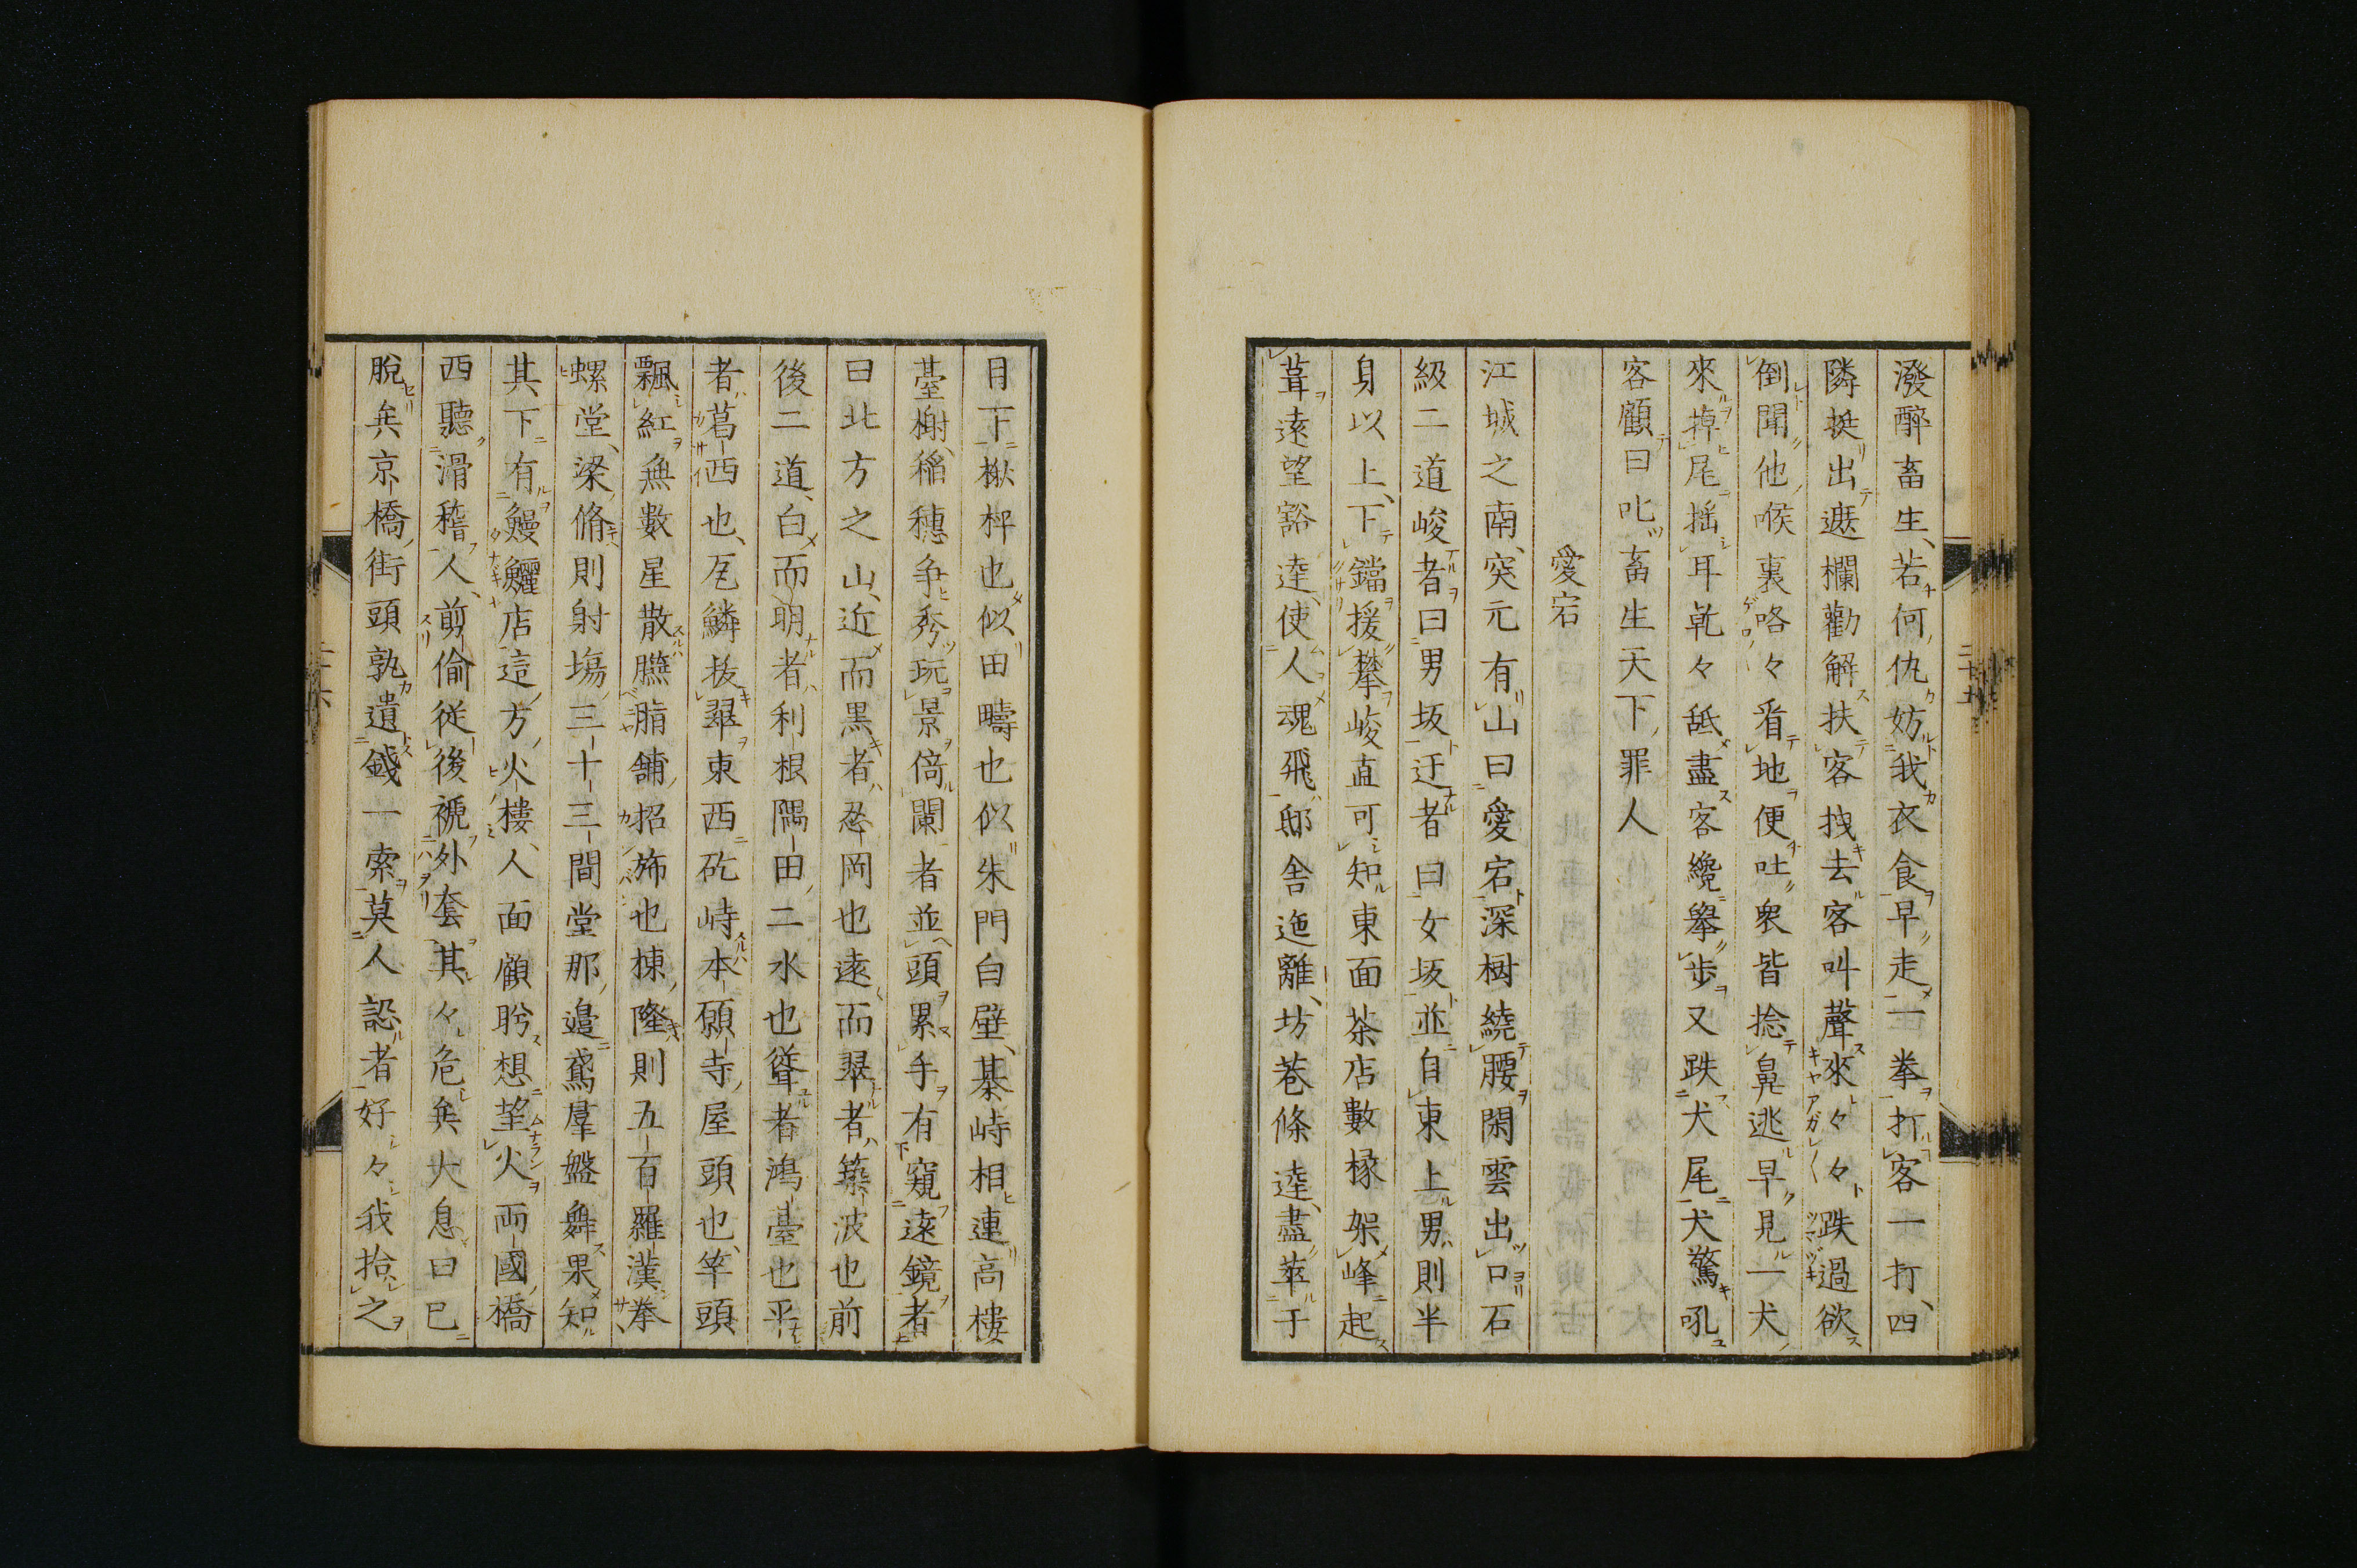 潑醉畜生、若何仇妨我衣食早走一拳打客一打、四
隣挺出遮欄勸解扶客拽去客叫聲來々々跌過欲
倒聞他喉裏咯々看地便吐衆皆捻鼻逃早見一犬
來掉尾搖耳乾々舐盡客纔擧步又跌犬尾犬驚吼
客顧曰叱畜生天下罪人
愛宕
江城之南、突兀有山曰愛宕深樹繞腰閑雲出口石
級二道峻者曰男坂迂者曰女坂並自東上男則半
身以上、下鐺援攀峻直可知東面茶店數椽架峰起
葺遠望豁達、使人魂飛邸舍迤離、坊巷條達、盡萃于
目下楸枰也似田疇也似朱門白壁、棊峙相連高樓
臺榭、稻穗爭秀玩景倚闌者並頭累手有窺遠鏡者
曰北方之山、近而黑者忍岡也遠而翠者、築波也前
後二道、白而明者利根隅田二水也聳者鴻臺也平
者葛西也、瓦鱗抜翠東西矻峙本願寺屋頭也、竿頭
飄紅無數星散臙脂舖招旆也棟隆則五百羅漢拳
螺堂、梁脩則射場三十三間堂那邉鳶羣盤舞果知
其下有鰻鱺店這方火樓、人面顧盻想望火両國橋
西聽滑稽人、剪偷從後褫外套其々危矣大息曰已
脫矣京橋街頭孰遺錢一索莫人認者好々我拾之
二十五